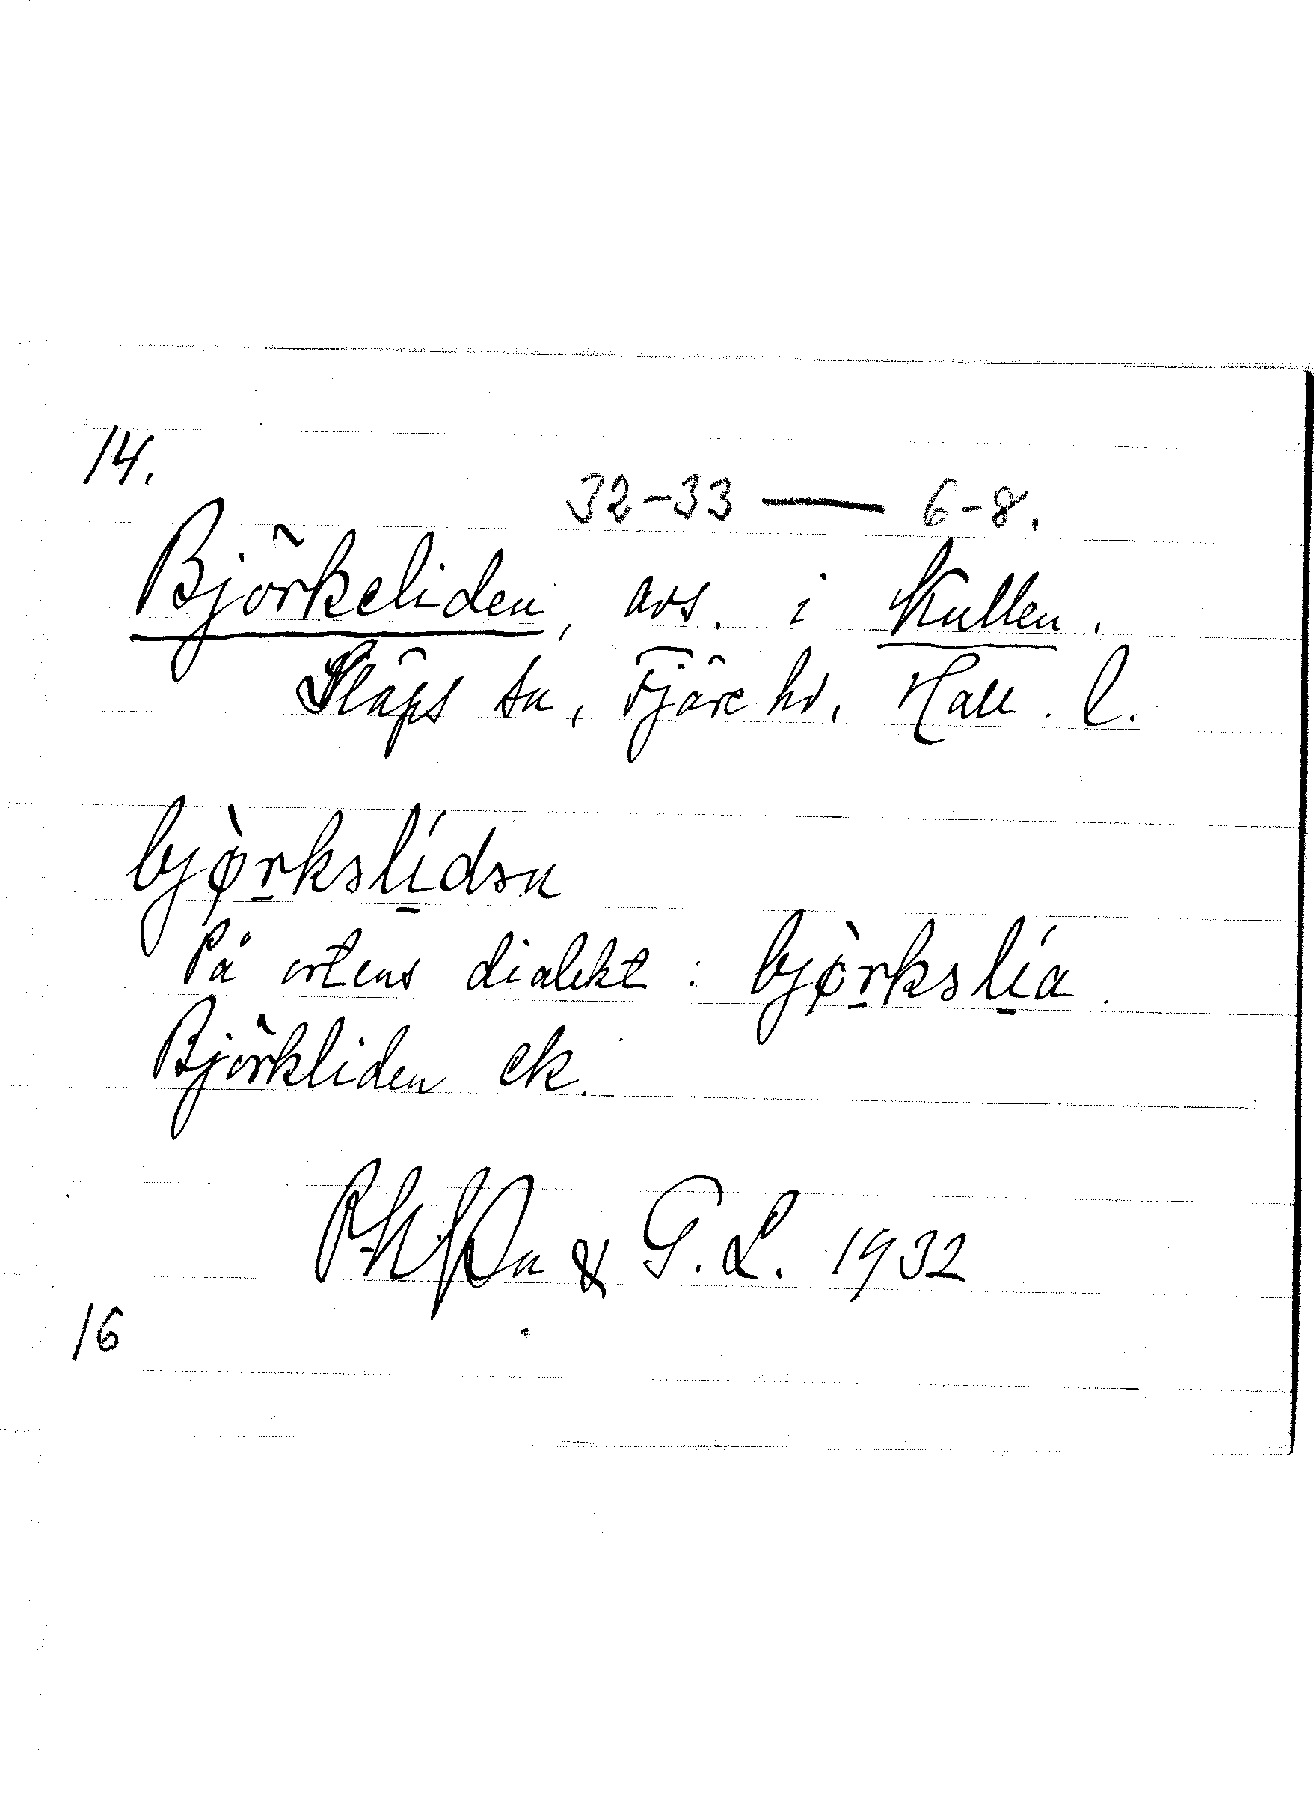 14.
32-33 — 6-8.
Björkeliden, avs. i Kullen.
Släps sn, Fjäre hd, Hall. l.
bjø̀rkəlídən
På ortens dialekt: bjø̀rkəlía.
Björkliden ek.
& G. L. 1932
16